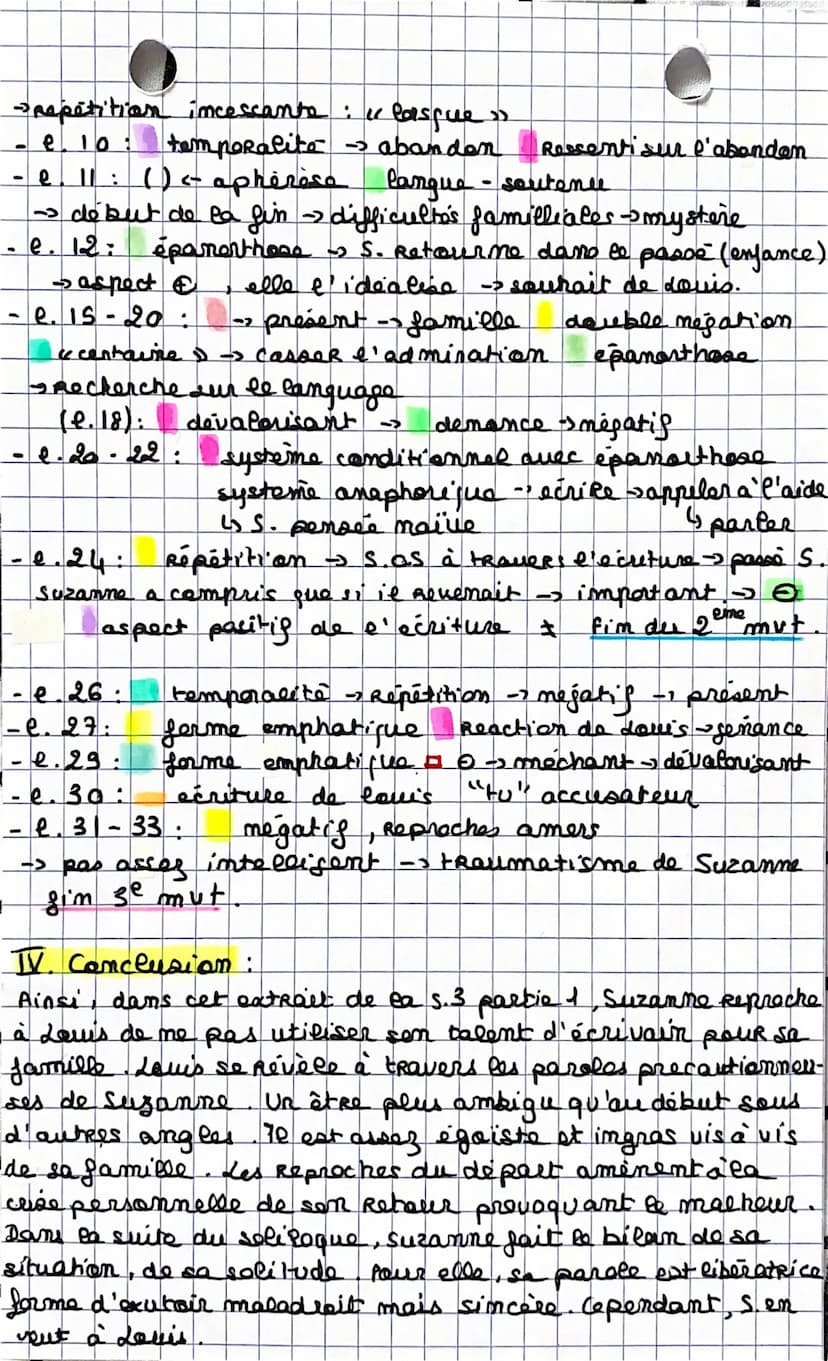 → répétition incessante : « lorsque »
- l. 10 : temporalité → abandon Ressenti sur l'abandon
- l. 11 : () ← aphérèse langue - soutenu
→ début de la fin → difficultés familliales → mystère
- l. 12 : épanorthose → S. Retourne dans le passé (enfance)
→ aspect ⊕, elle l'idéalise → souhait de Louis.
- l. 15 - 20 : → présent → famille double négation
« certaine » → casser l'admiration épanorthose
→ Recherche sur le language
(l. 18) : dévalorisant → démence → négatif
- l. 20 - 22 : système conditionnel avec épanorthose
système anaphorique → écrire → appeler à l'aide
↳ S. pensée naïve ↳ parler
- l. 24 : Répétition → S.OS à travers l'écriture → passé S.
Suzanne a compris que si il revenait → important → ⊖
aspect pacitif de l'écriture * fin du 2ème mvt.
- l. 26 : temporalité → Répétition → négatif → présent
- l. 27 : forme emphatique Réaction de Louis → gênance
- l. 29 : forme emphatique ⊖ → méchant → dévalorisant
- l. 30 : écriture de louis "tu" accusateur
- l. 31 - 33 : négatif, Reproches amers
→ pas assez intelligent → traumatisme de Suzanne
fin 3e mvt.
IV. Conclusion :
Ainsi, dans cet extrait de la s.3 partie 1, Suzanne reproche
à Louis de ne pas utiliser son talent d'écrivain pour sa
famille. Louis se révèle à travers les paroles precautionneu-
ses de Suzanne. Un être plus ambigu qu'au début sous
d'autres angles. Il est assez égoiste et ingras vis à vis
de sa famille. Les Reproches du départ amènent à la
crise personnelle de son Retour provoquant le malheur.
Dans la suite du soliloque, Suzanne fait le bilan de sa
situation, de sa solitude. Pour elle, sa parole est libératrice
forme d'exutoir maladroit mais sincère. Cependant, S. en
veut à Louis.